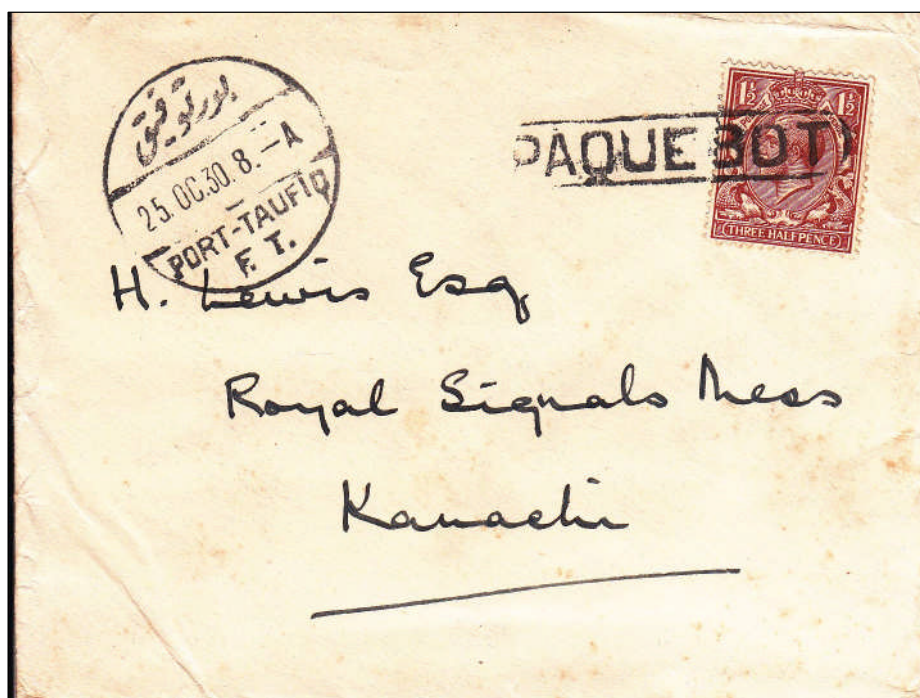 بور توفيق
25.OC.30.8.-A
PORT-TAUFIQ
F. T.
PAQUEBOT
1½ 1½
THREE HALFPENCE
H. Lewis Esq
Royal Signals Mess
Karachi